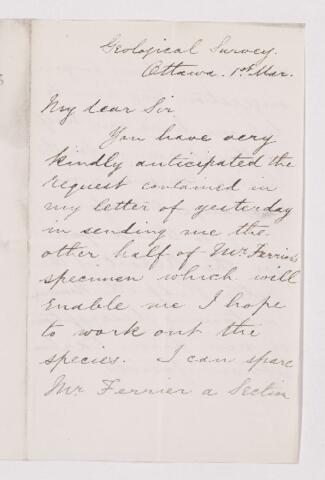 Geological Survey.
Ottawa. 1st Mar.
My dear Sir
You have very
kindly anticipated the
request contained in
my letter of yesterday
in sending me the
other half of Mr. Ferrier's
specimen which will
enable me I hope
to work out the
species. I can spare
Mr. Ferrier a Section